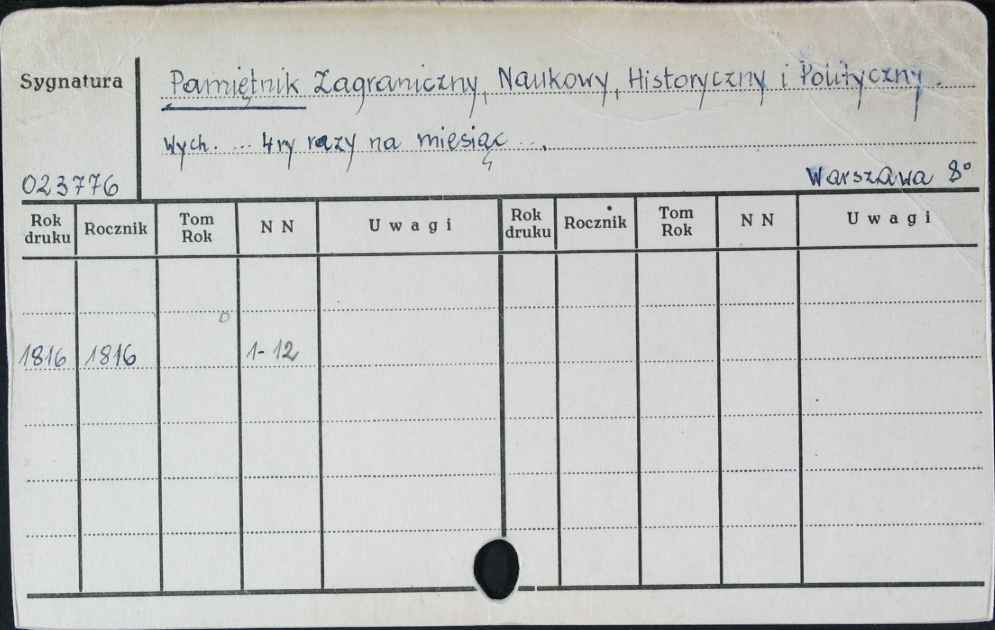 Sygnatura
Pamiętnik Zagraniczny, Naukowy, Historyczny i Polityczny.
Wych. ... 4ry razy na miesiąc ...
023776
Warszawa 8°
Rok druku Rocznik Tom Rok N N Uwagi Rok druku Rocznik Tom Rok N N Uwagi
1816 1816 1-12